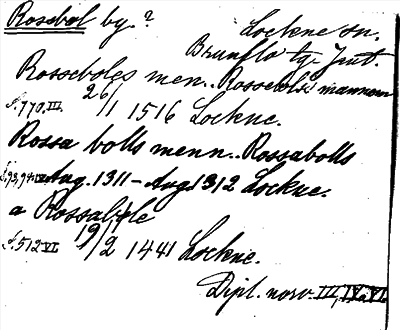 Rosebol by.?
Lockne sn.
Brunflo tg. Jmt.
Rosseboles men.. Rossebolsmannom
s. 770. III. 26/1 1516 Lockne.
Rossa bolls menn.. Rossabolls
s. 93, 94. IV Aug. 1311 - Aug. 1312 Lockne.
a Rossabole
s. 512 VI 19/2 1441 Lockne.
Dipl. norv. III, IV, VI.